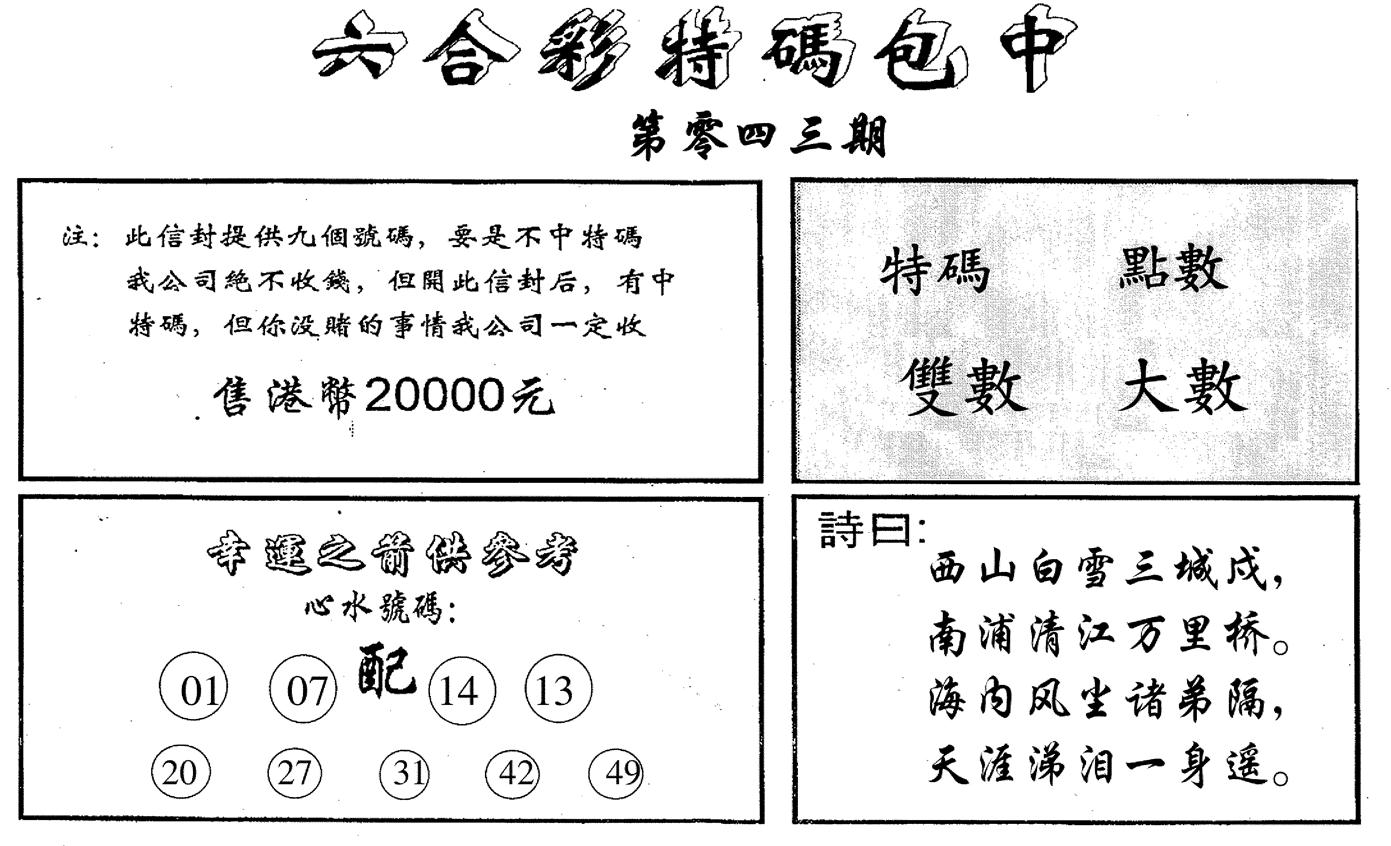 六合彩特碼包中
第零四三期
注：此信封提供九個號碼，要是不中特碼
我公司絶不收錢，但開此信封后，有中
特碼，但你没賭的事情我公司一定收
售港幣20000元
特碼 點數
雙數 大數
幸運之箭供參考
心水號碼：
01 07 配 14 13
20 27 31 42 49
詩曰：
西山白雪三城戍，
南浦清江万里桥。
海内风尘诸弟隔，
天涯涕泪一身遥。